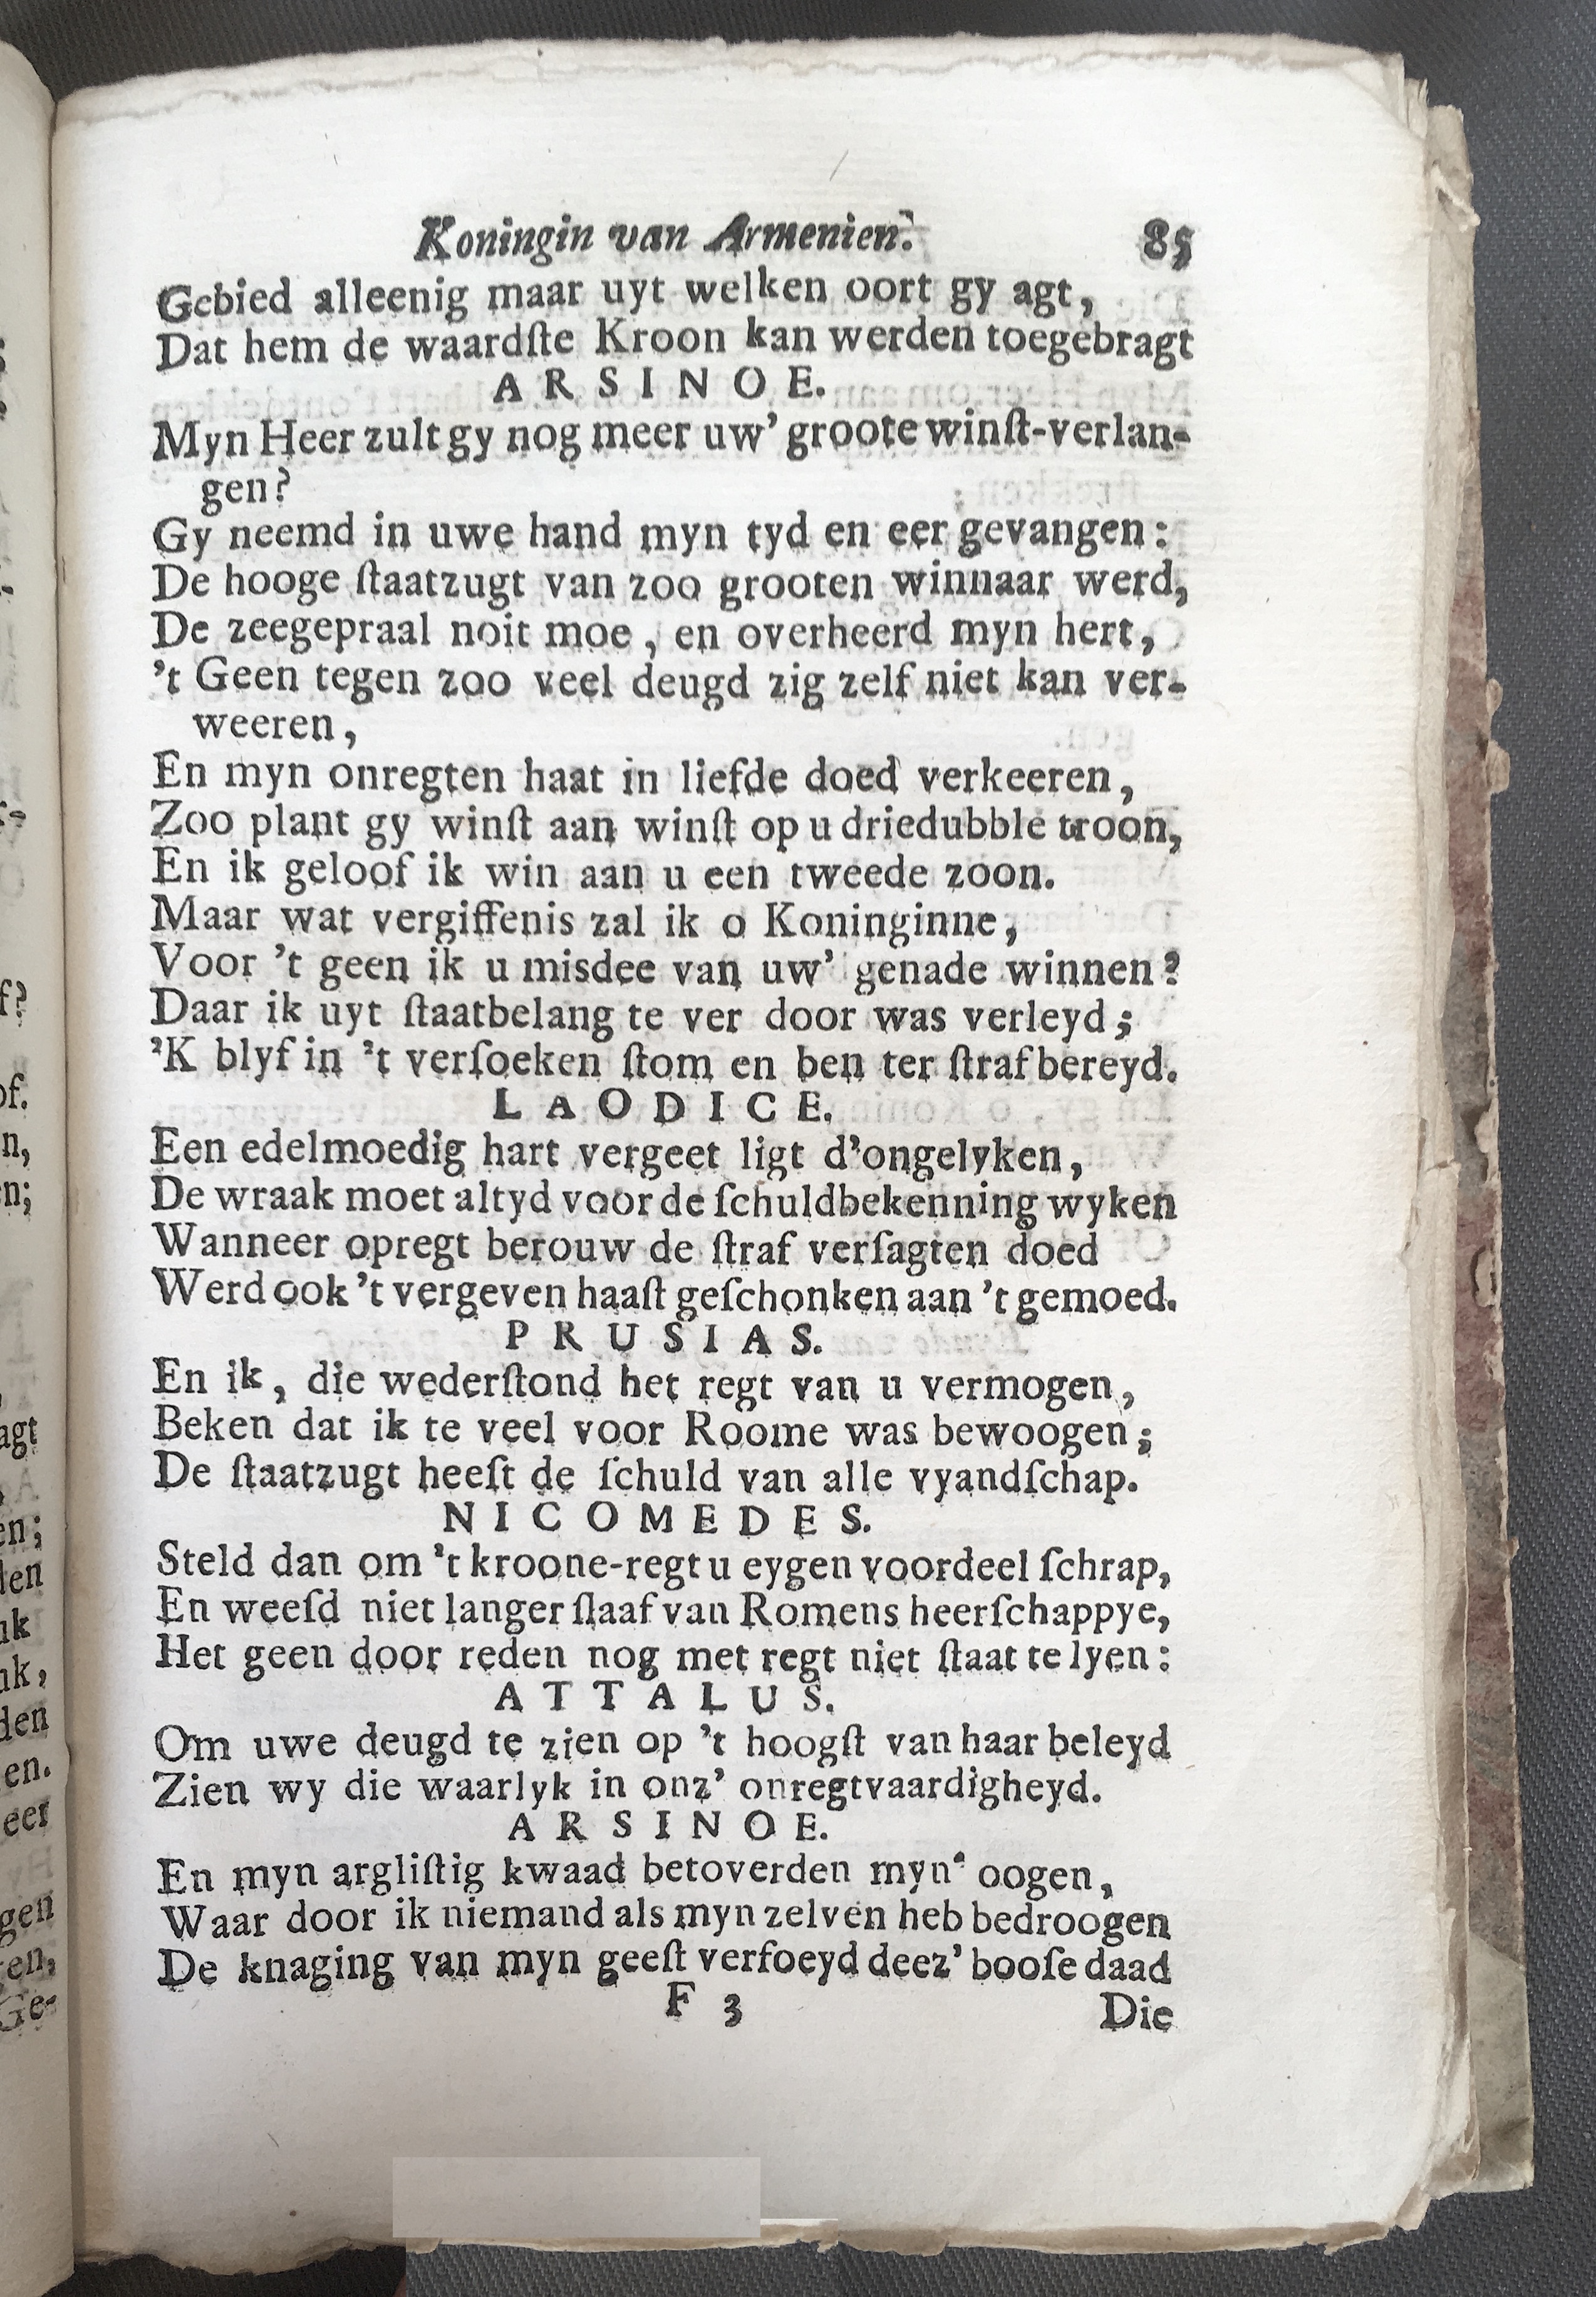 Koningin van Armenien. 85
Gebied alleenig maar uyt welken oort gy agt,
Dat hem de waardſte Kroon kan werden toegebragt
ARSINOE.
Myn Heer zult gy nog meer uw' groote winſt-verlan-
gen?
Gy neemd in uwe hand myn tyd en eer gevangen:
De hooge ſtaatzugt van zoo grooten winnaar werd,
De zeegepraal noit moe, en overheerd myn hert,
't Geen tegen zoo veel deugd zig zelf niet kan ver-
weeren,
En myn onregten haat in liefde doed verkeeren,
Zoo plant gy winſt aan winſt op u driedubble troon,
En ik geloof ik win aan u een tweede zoon.
Maar wat vergiffenis zal ik o Koninginne,
Voor 't geen ik u misdee van uw' genade winnen?
Daar ik uyt ſtaatbelang te ver door was verleyd;
'K blyf in 't verſoeken ſtom en ben ter ſtraf bereyd.
LAODICE.
Een edelmoedig hart vergeet ligt d'ongelyken,
De wraak moet altyd voor de ſchuldbekenning wyken
Wanneer opregt berouw de ſtraf verſagten doed
Werd ook 't vergeven haaſt geſchonken aan 't gemoed.
PRUSIAS.
En ik, die wederſtond het regt van u vermogen,
Beken dat ik te veel voor Roome was bewoogen;
De ſtaatzugt heeft de ſchuld van alle vyandſchap.
NICOMEDES.
Steld dan om 't kroone-regt u eygen voordeel ſchrap,
En weeſd niet langer ſlaaf van Romens heerſchappye,
Het geen door reden nog met regt niet ſtaat te lyen:
ATTALUS.
Om uwe deugd te zien op 't hoogſt van haar beleyd
Zien wy die waarlyk in onz' onregtvaardigheyd.
ARSINOE.
En myn argliſtig kwaad betoverden myn' oogen,
Waar door ik niemand als myn zelven heb bedroogen
De knaging van myn geeſt verfoeyd deez' booſe daad
F 3 Die